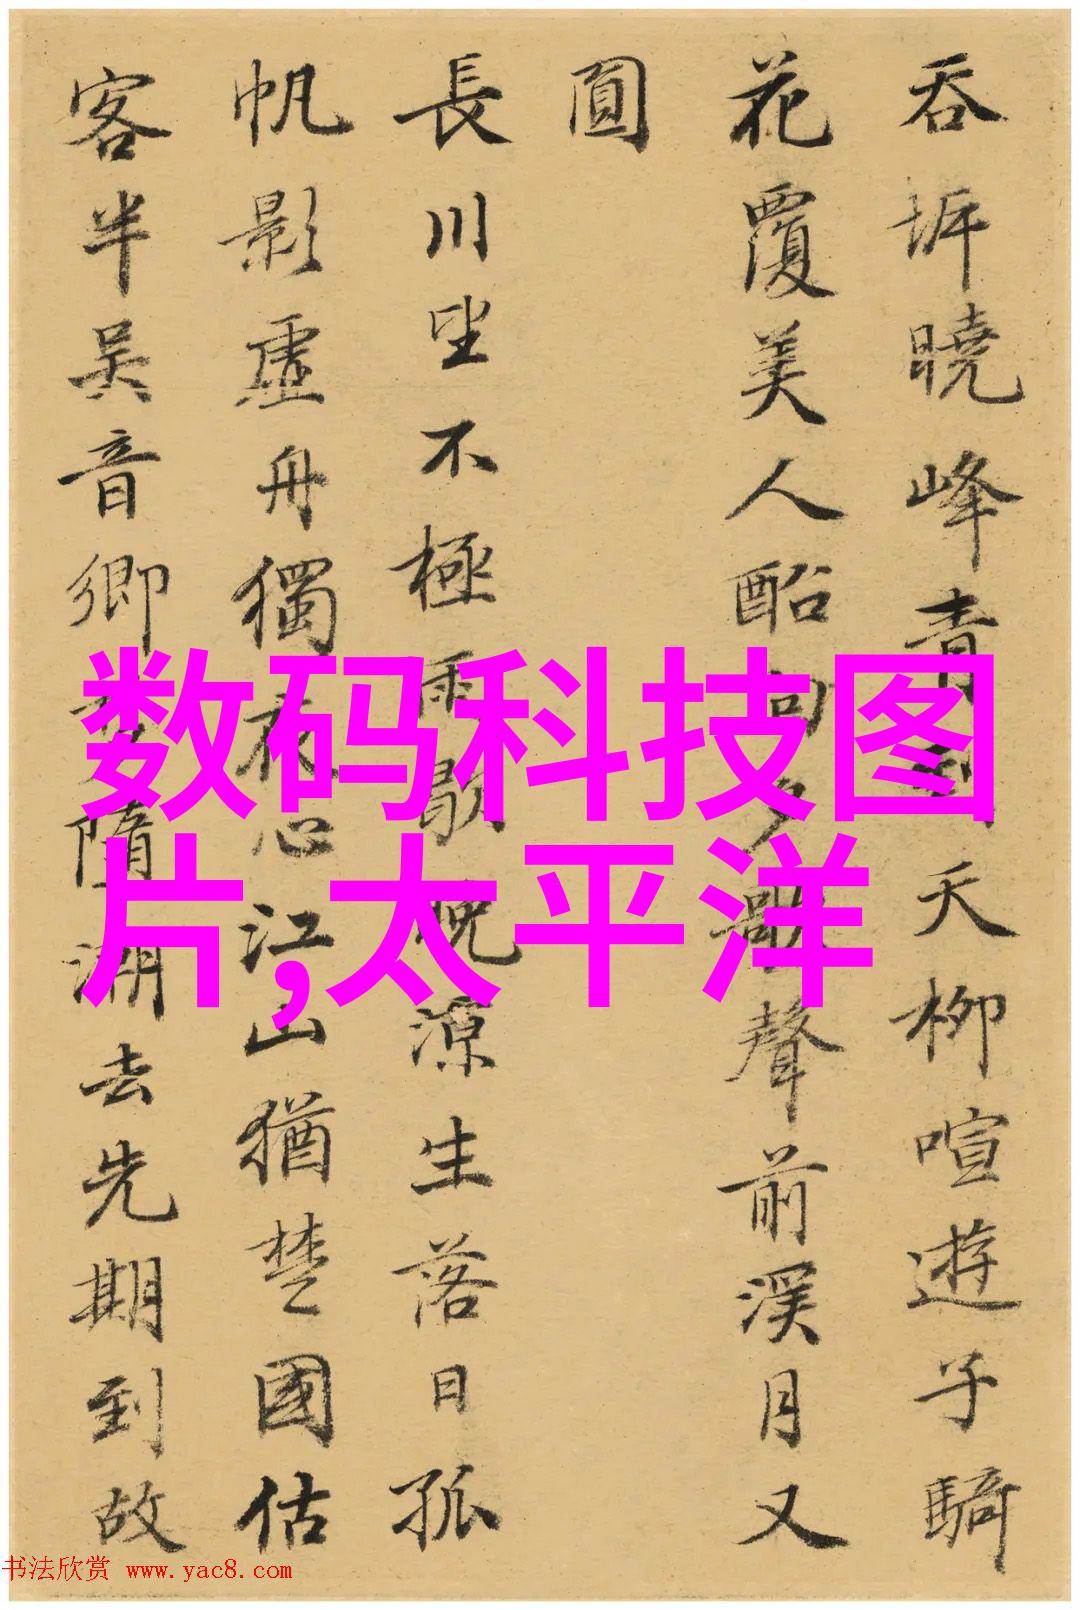 吞坼曉峰青到天柳喧遊子騎
花覆美人船向夕歌聲前溪月又
圓
長川坐不極雨歇晚涼生落日孤
帆影虛舟獨夜心江山猶楚國估
客半吳音鄉夢隨潮去先期到故
数码科技图
片,太平洋
书法欣赏 www.yac8.com